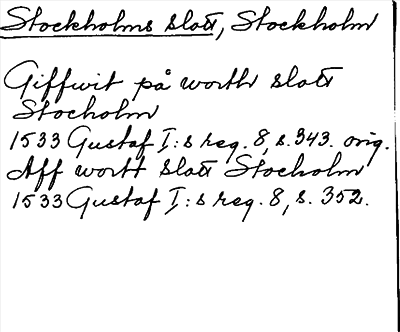 Stockholms slott, Stockholm
Giffwit på worth slott
Stocholm
1533 Gustaf I:s reg. 8, s. 343. orig.
Aff wortt slott Stocholm
1533 Gustaf I:s reg. 8, s. 352.